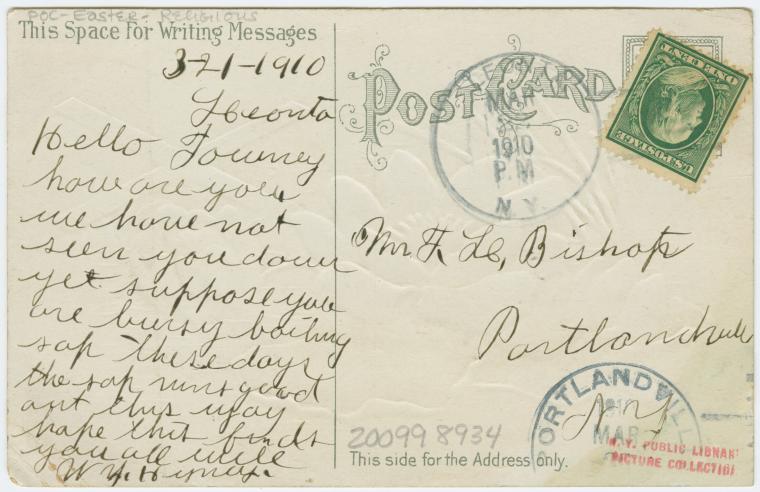 POC-Easter-Religious
This Space For Writing Messages
3-21-1910
Hello Towney
how are you
we have not
seen you down
yet suppose you
are bursy boiling
sap these days
the sap runs good
out this way
hope this finds
you all well
POST CARD
MAR
1910
P.M
N.Y.
ONE CENT
U.S. POSTAGE
Mr F. Bishop
Portlandville
N Y
PORTLANDVILLE
1910
MAR
20099 8934
This side for the Address only.
N. Y. PUBLIC LIBRAR
PICTURE COLLECTION